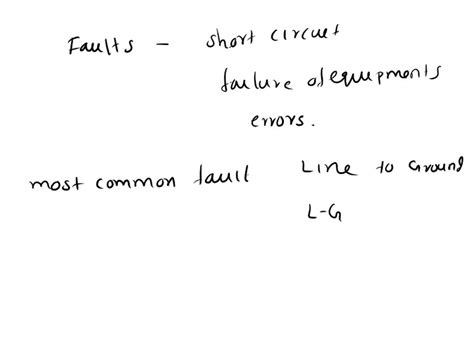 Faults - short circuit
failure of equipments
errors.
most common fault Line to Ground
L-G